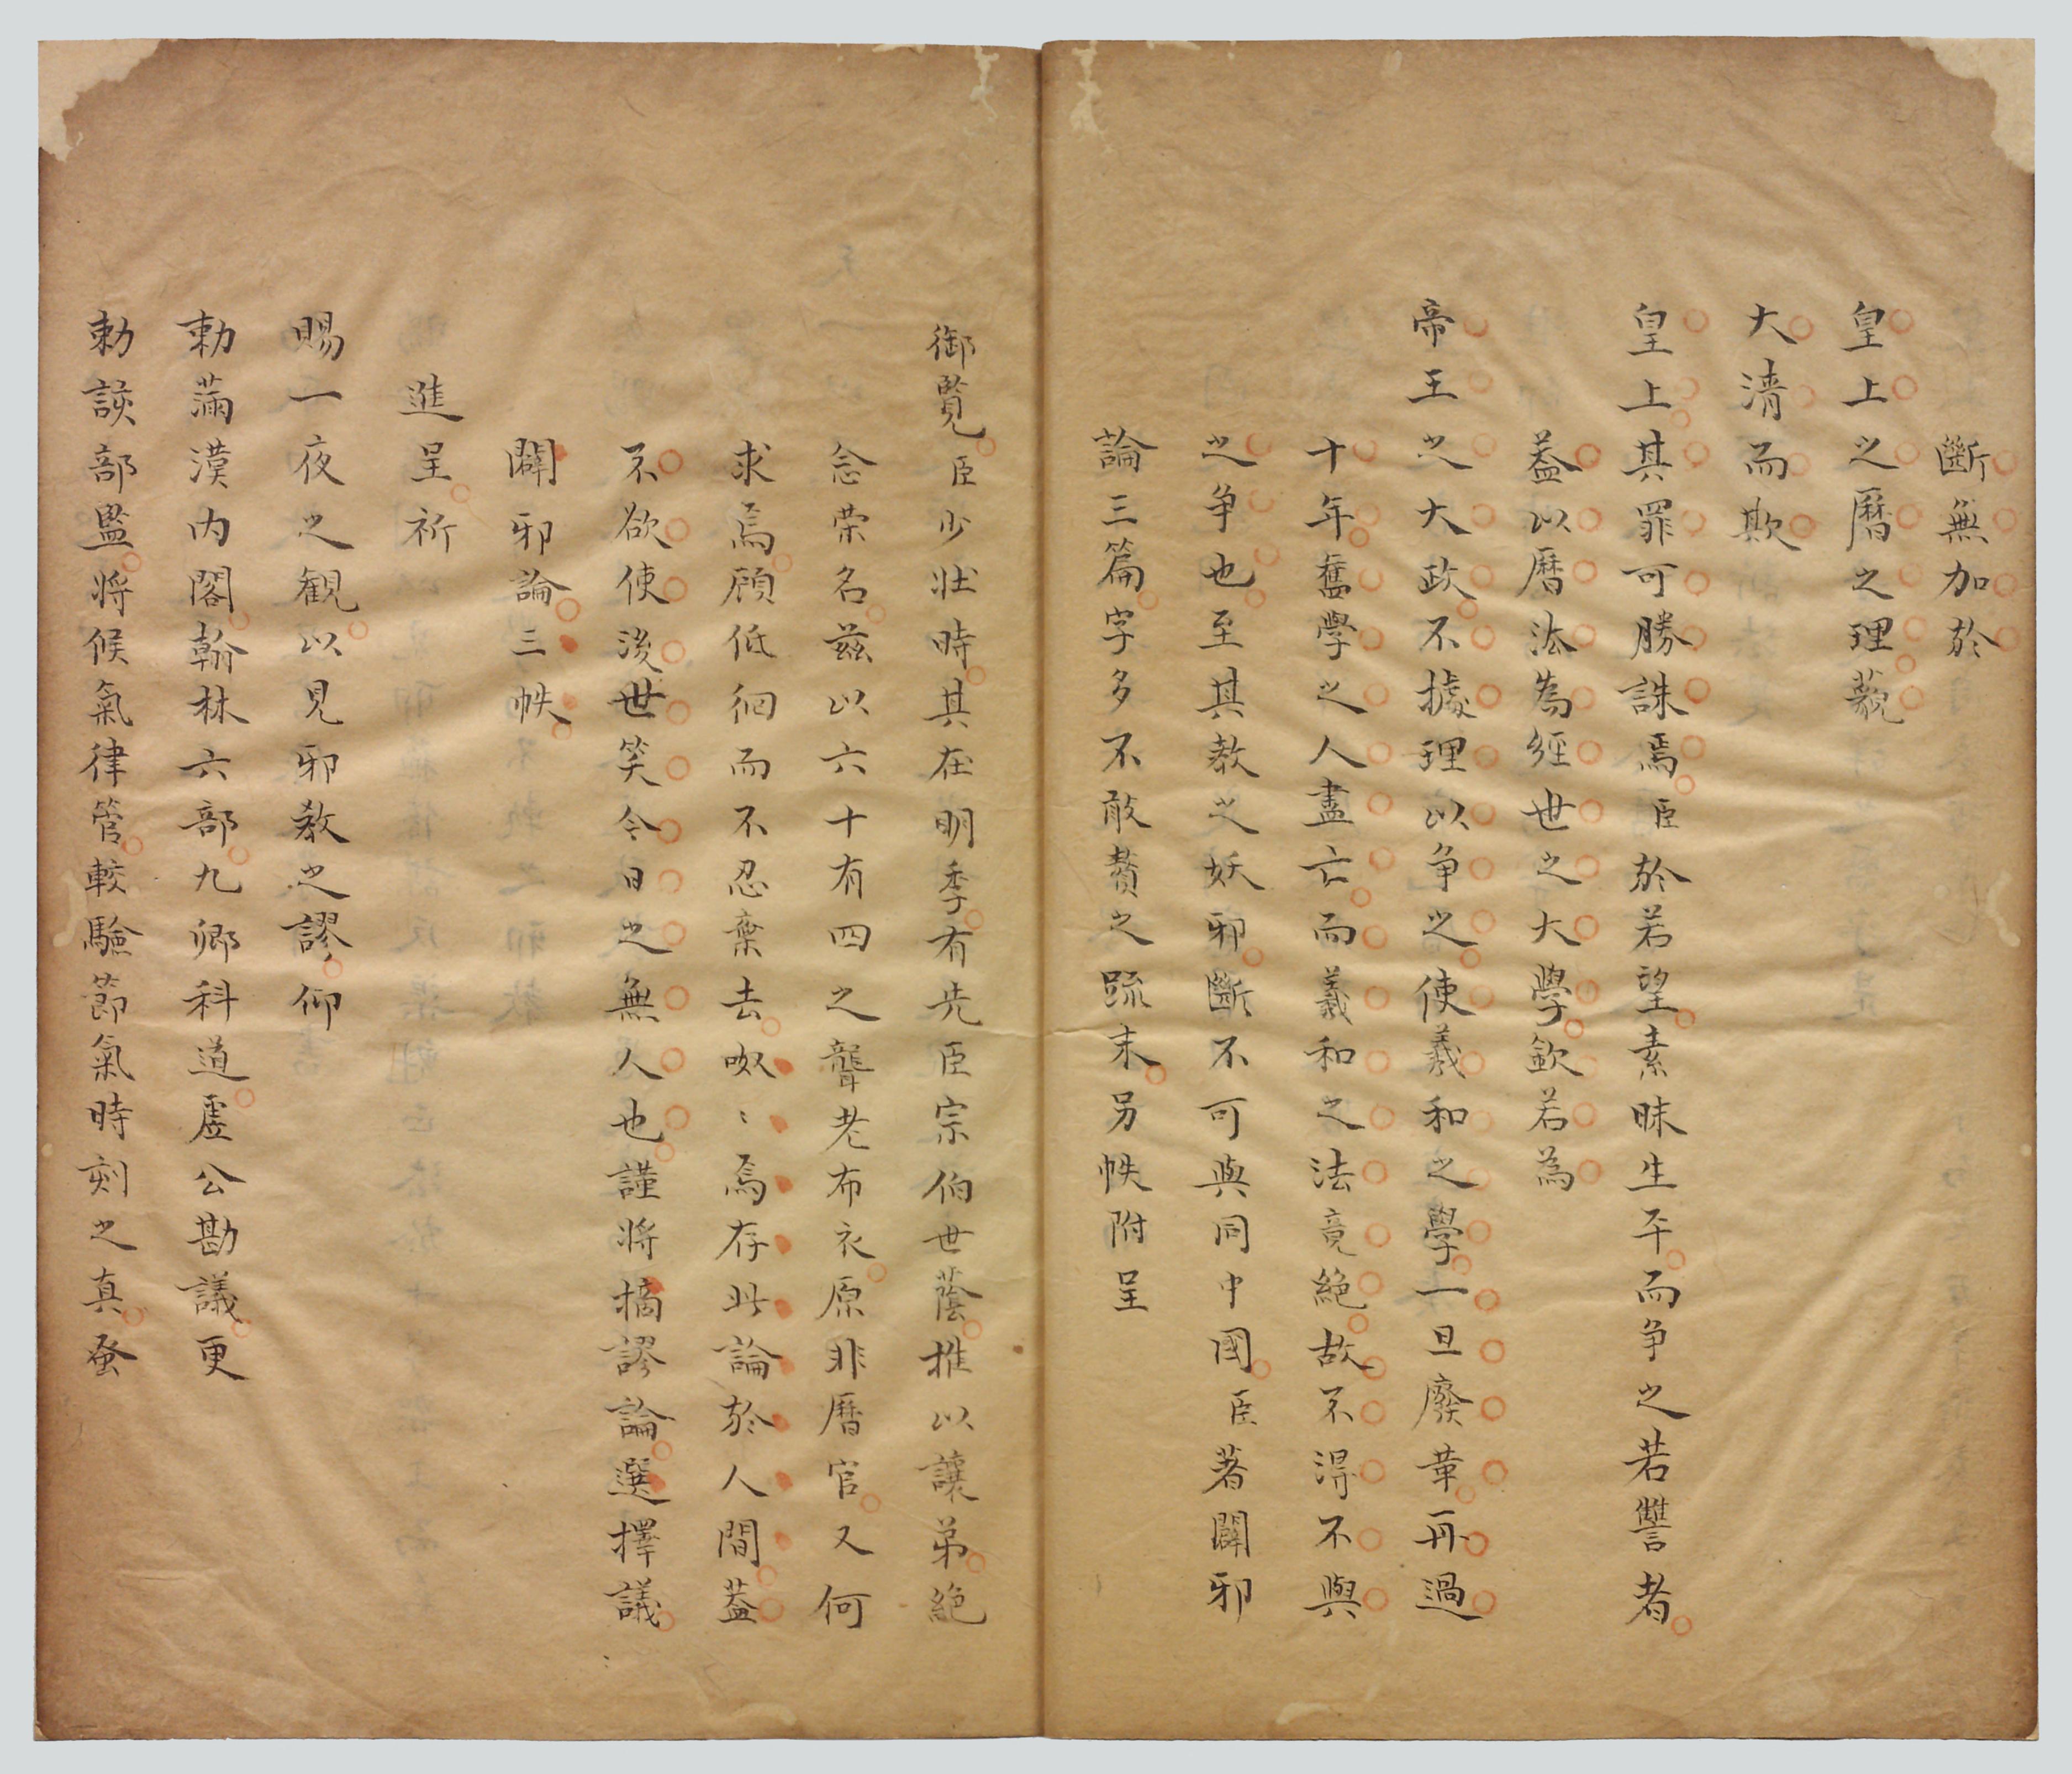 斷無加於
皇上之曆之理藐
大清而欺
皇上其罪可勝誅焉臣於若望素昧生平而爭之若讐者
葢以曆法為經世之大學欽若為
帝王之大政不據理以爭之使羲和之學一旦廢革再過
十年舊學之人盡亡而羲和之法竟絕故不得不與
之爭也至其教之妖邪斷不可與同中國臣著闢邪
論三篇字多不敢贅之䟽末另帙附呈
御覽臣少壯時其在明季有先臣宗伯世蔭推以讓弟絕
念荣名茲以六十有四之聾老布衣原非曆官又何
求焉顧低徊而不忍棄去呶〻焉存此論於人間葢
不欲使後世笑今日之無人也謹將摘謬論選擇議
闢邪論三帙
進呈祈
賜一夜之觀以見邪教之謬仰
勅滿漢內閣翰林六部九卿科道虛公勘議更
勅諚部監將候氣律管較驗節氣時刻之真蚤